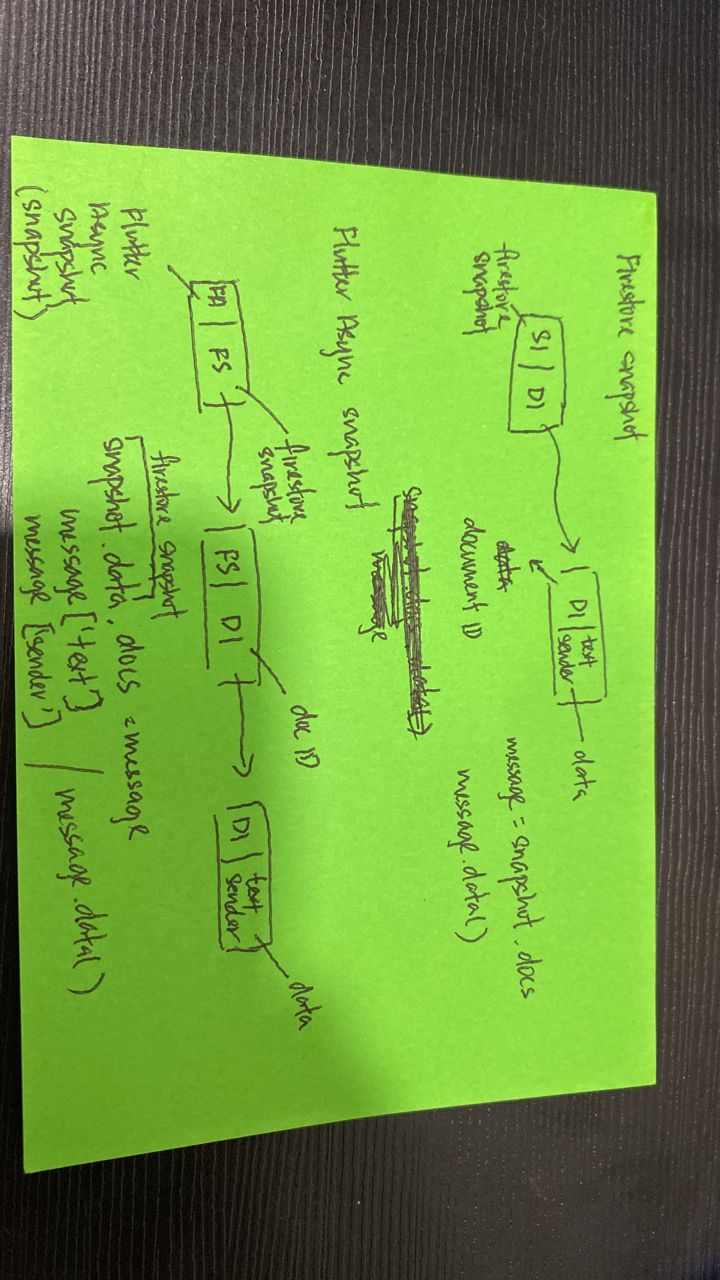 Firestore snapshot
firestore
snapshot
S1 | D1
D1 | text
sender
data
data
document ID
message = snapshot.docs
message.data()
message
Flutter Async snapshot
firestore
snapshot
FA | FS
FS | D1
doc ID
D1 | text
sender
data
Flutter
Async
snapshot
(snapshot)
firestore snapshot
snapshot.data, docs = message
message ['text']
message ['sender'] / message.data()